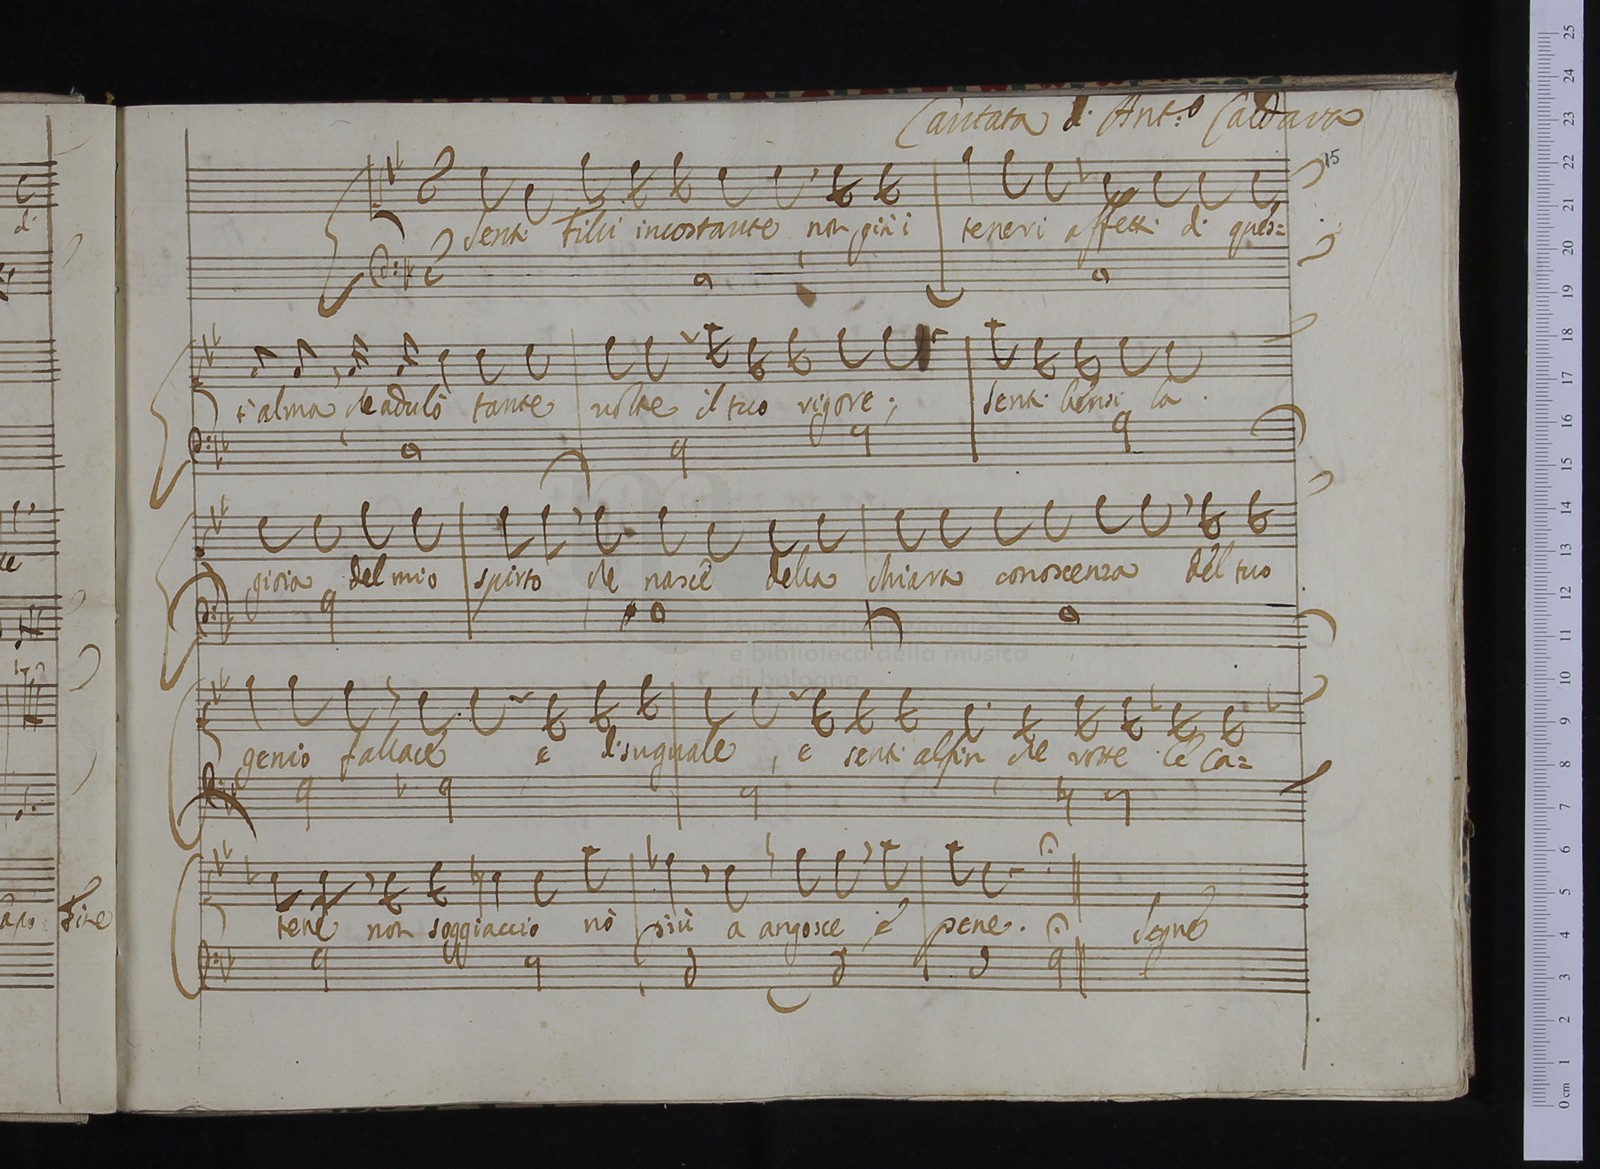 Cantata d. Ant:o Caldara
15
Senti Filli incostante non già i teneri affetti di ques=
t'alma, che adulò tante volte il tuo vigore; senti bensi la
gioia del mio spirto che nasce della chiara conoscenza del tuo
genio fallace e disuguale, e senti alfin che rotte le ca=
tene non soggiaccio nò più a angosce e pene. Segue
di
apo Fine
museo internazionale
e biblioteca della musica
di bologna
25
24
23
22
21
20
19
18
17
16
15
14
13
12
11
10
9
8
7
6
5
4
3
2
1
0 cm